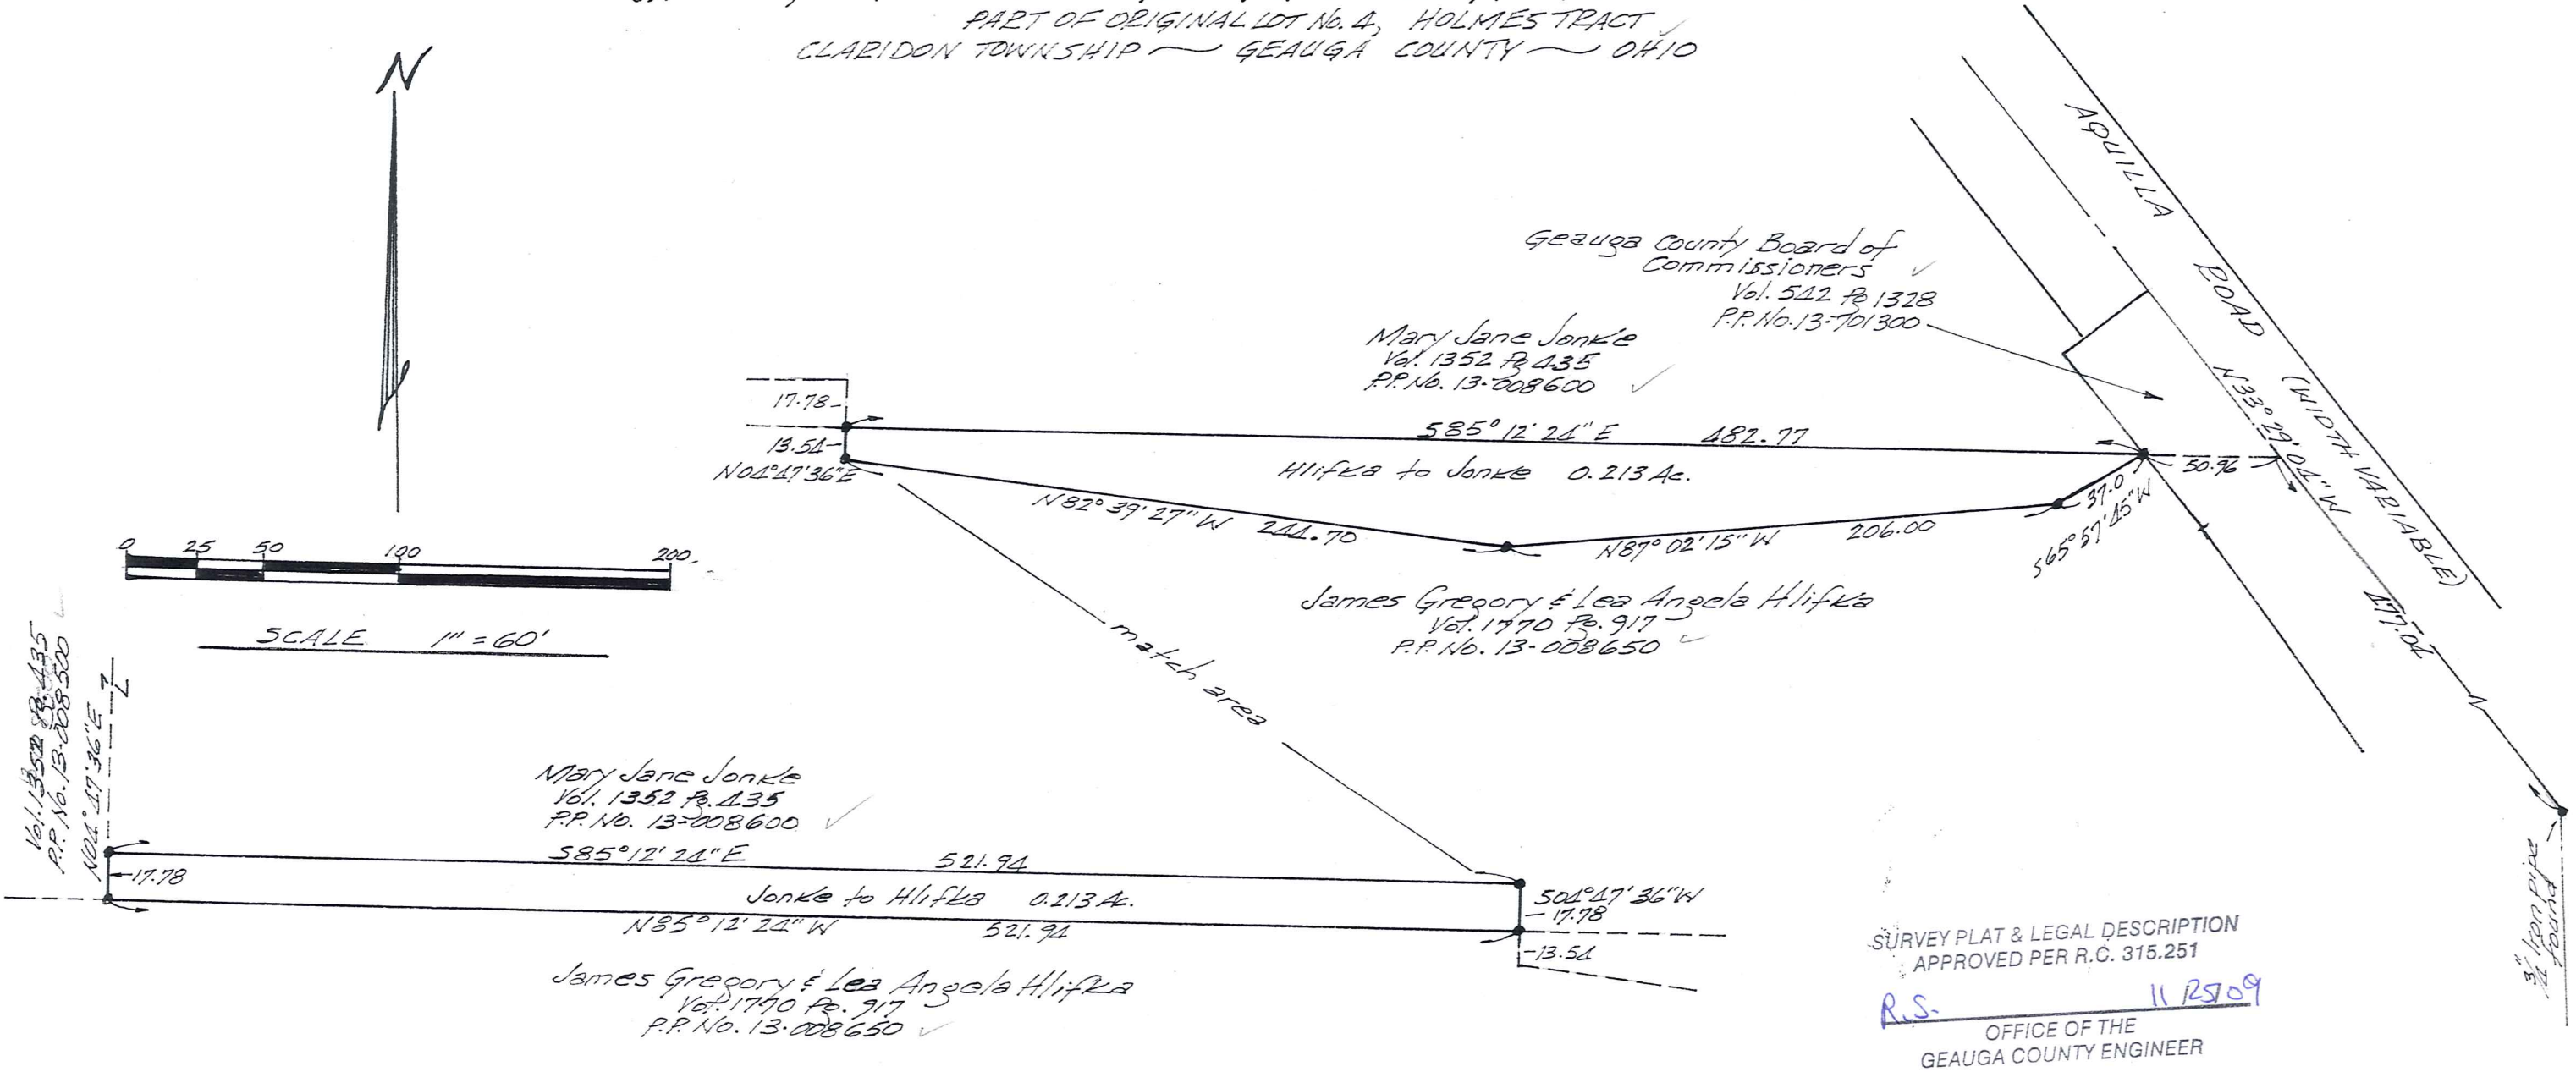 PART OF ORIGINAL LOT No. 4, HOLMES TRACT
CLARIDON TOWNSHIP ~ GEAUGA COUNTY ~ OHIO
N
AQUILLA ROAD (WIDTH VARIABLE)
Geauga County Board of
Commissioners
Vol. 542 Pg 1328
P.P. No. 13-701300
Mary Jane Jonke
Vol. 1352 Pg 435
P.P. No. 13-008600
17.78
13.54
N04°47'36"E
S85°12'24"E 482.77
Hlifka to Jonke 0.213 Ac.
50.96
N33°29'04"W
477.04
37.0
S65°57'45"W
N82°39'27"W 244.70
N87°02'15"W 206.00
James Gregory & Lea Angela Hlifka
Vol. 1770 Pg. 917
P.P. No. 13-008650
0 25 50 100 200
SCALE 1" = 60'
match area
Vol. 1352 Pg. 435
P.P. No. 13-008500
N04°47'36"E
Mary Jane Jonke
Vol. 1352 Pg. 435
P.P. No. 13-008600
S85°12'24"E 521.94
17.78
Jonke to Hlifka 0.213 Ac.
N85°12'24"W 521.94
S04°47'36"W
17.78
13.54
James Gregory & Lea Angela Hlifka
Vol. 1770 Pg. 917
P.P. No. 13-008650
3/4" Iron pipe
found
SURVEY PLAT & LEGAL DESCRIPTION
APPROVED PER R.C. 315.251
R.S. 11/25/09
OFFICE OF THE
GEAUGA COUNTY ENGINEER